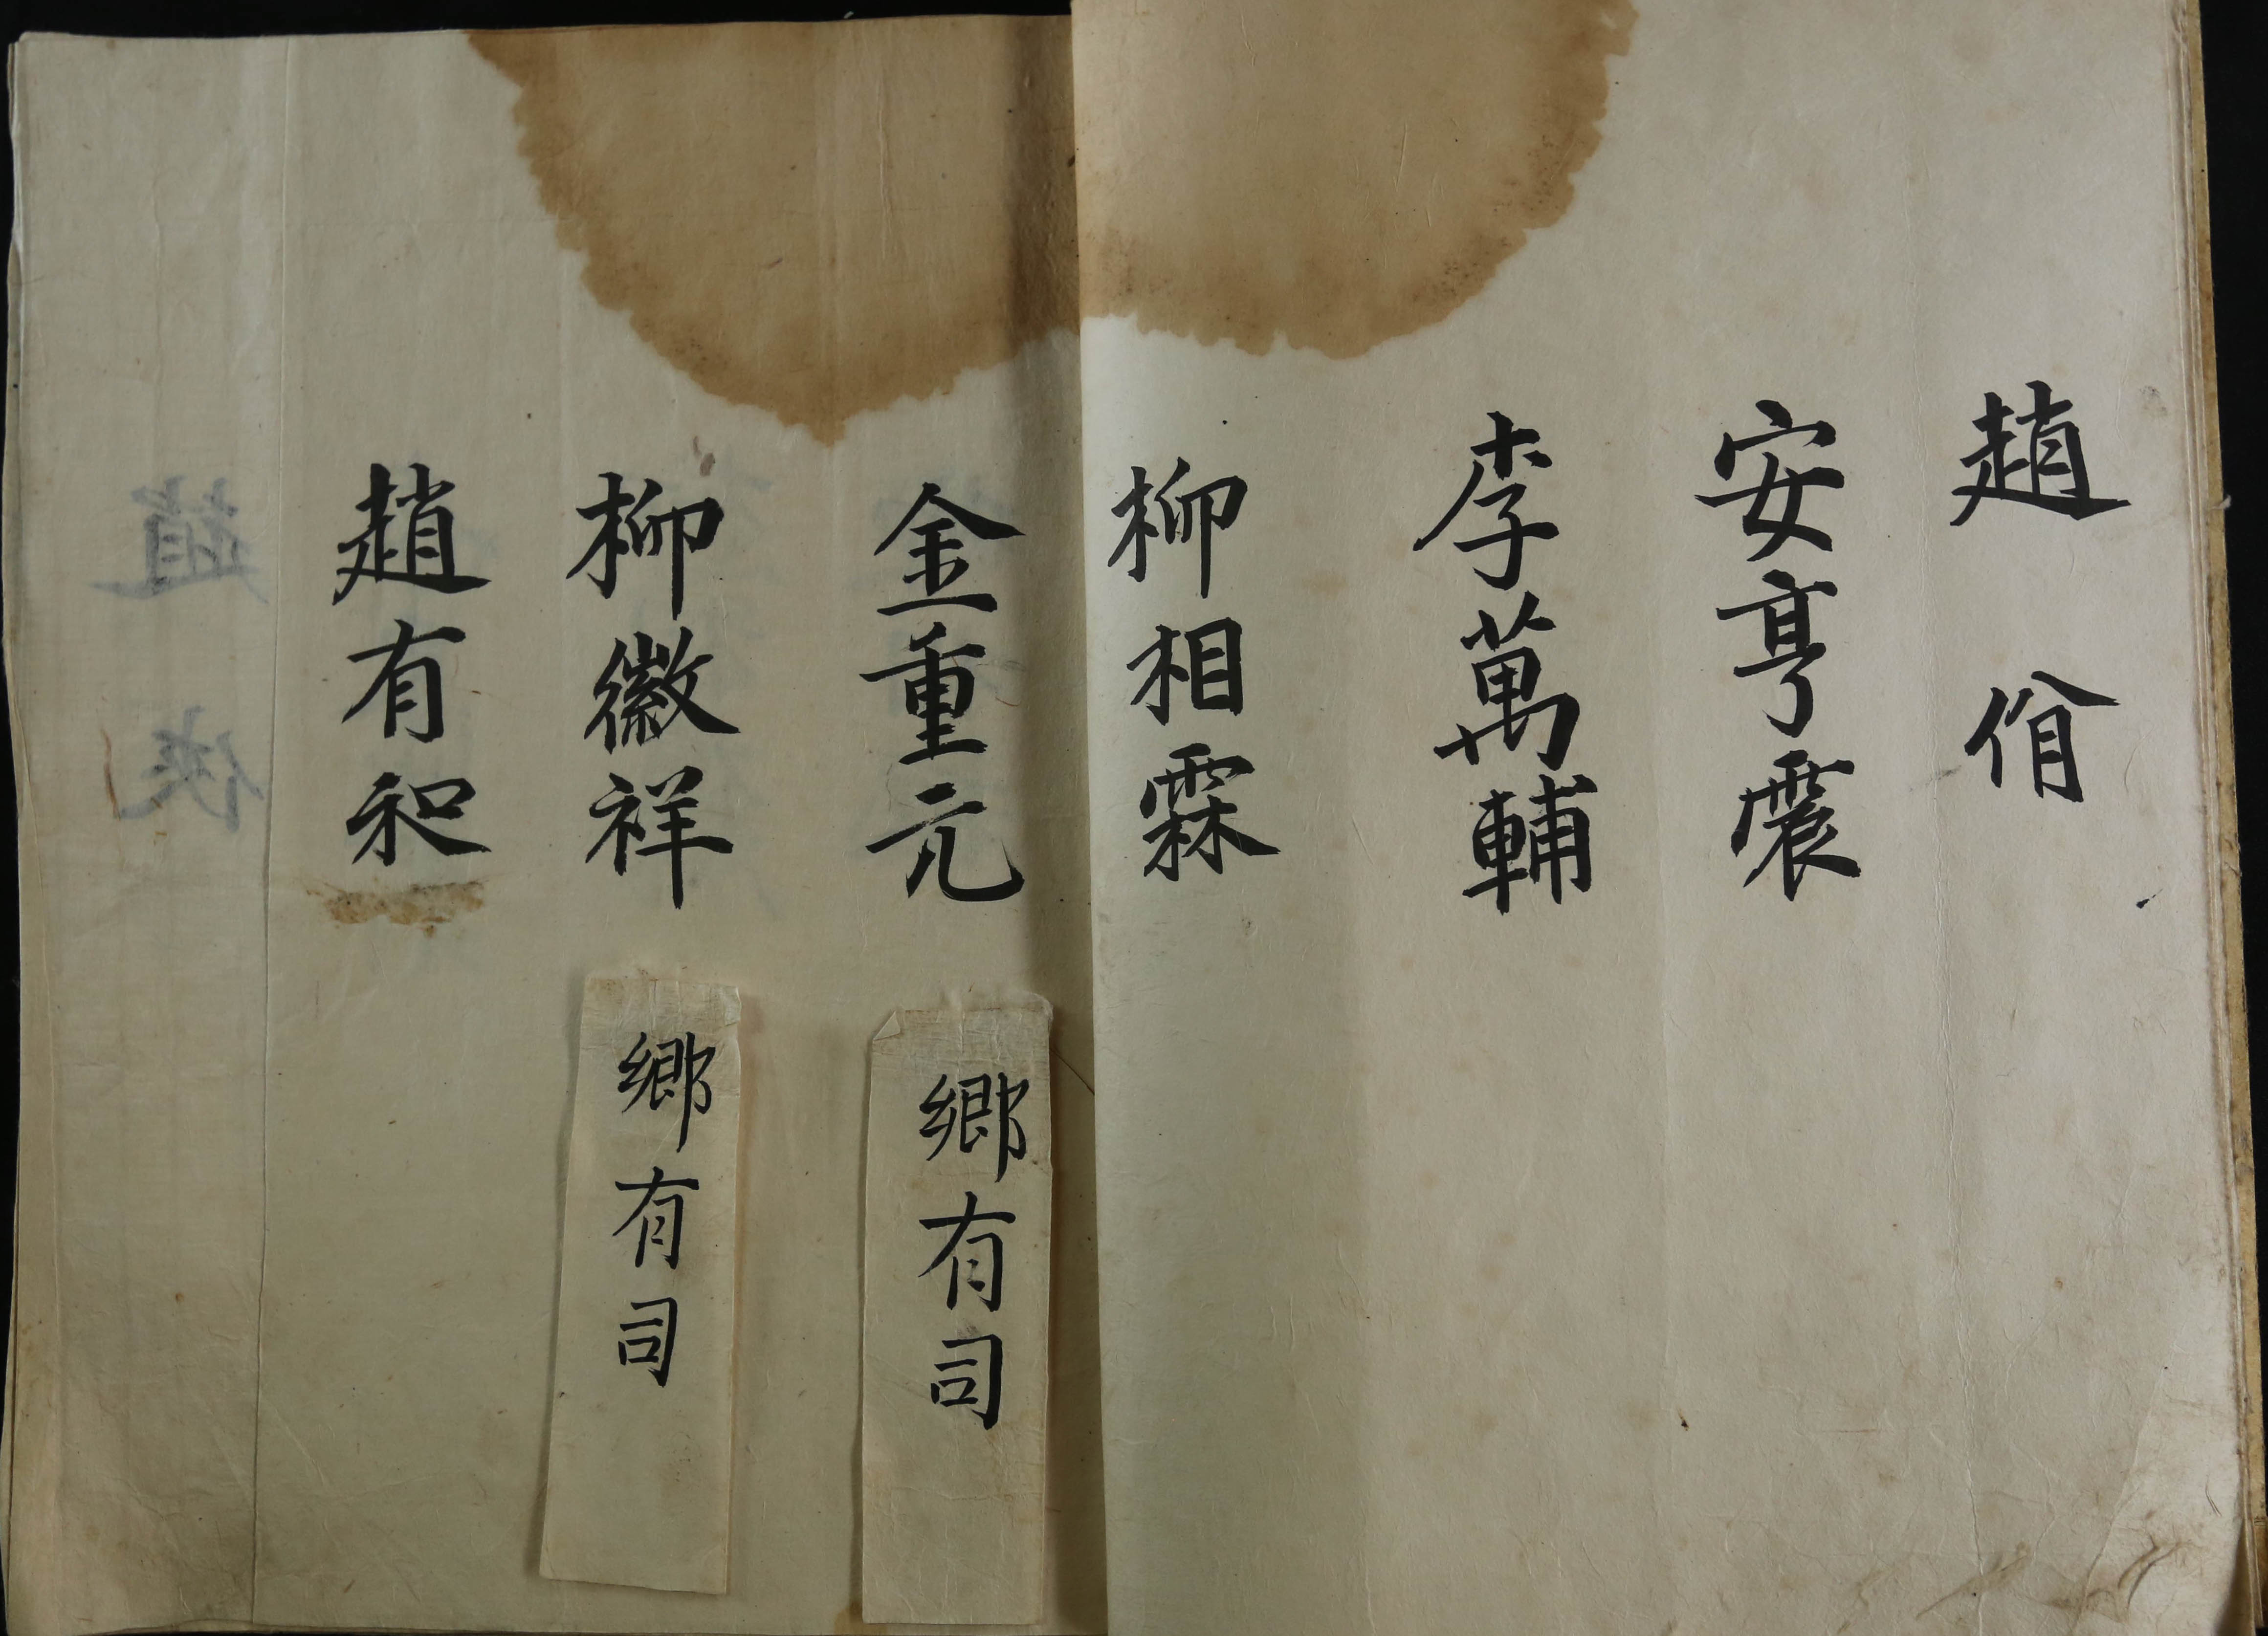 趙佾
安亨震
李萬輔
柳相霖
金重元
鄉有司
柳徽祥
鄉有司
趙有和